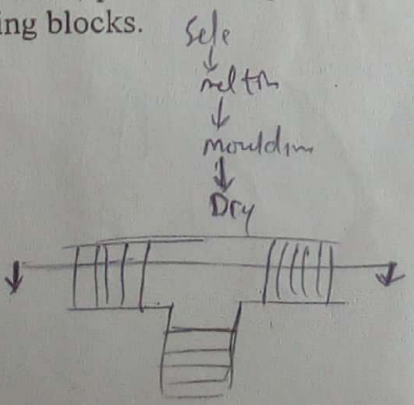 ing blocks.
Sele
meltin
mouldin
Dry